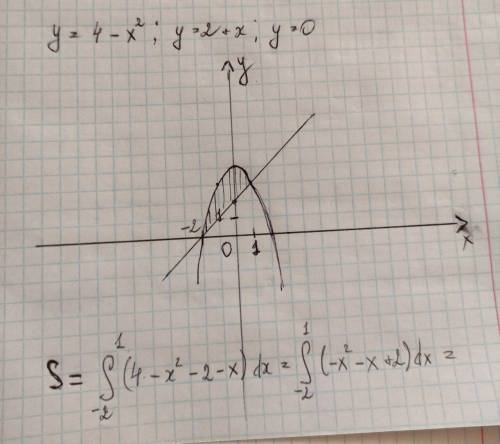 y = 4 - x²; y = 2 + x; y = 0
y
-2 1
0 1 x
S = ∫₋₂¹ (4 - x² - 2 - x) dx = ∫₋₂¹ (-x² - x + 2) dx =